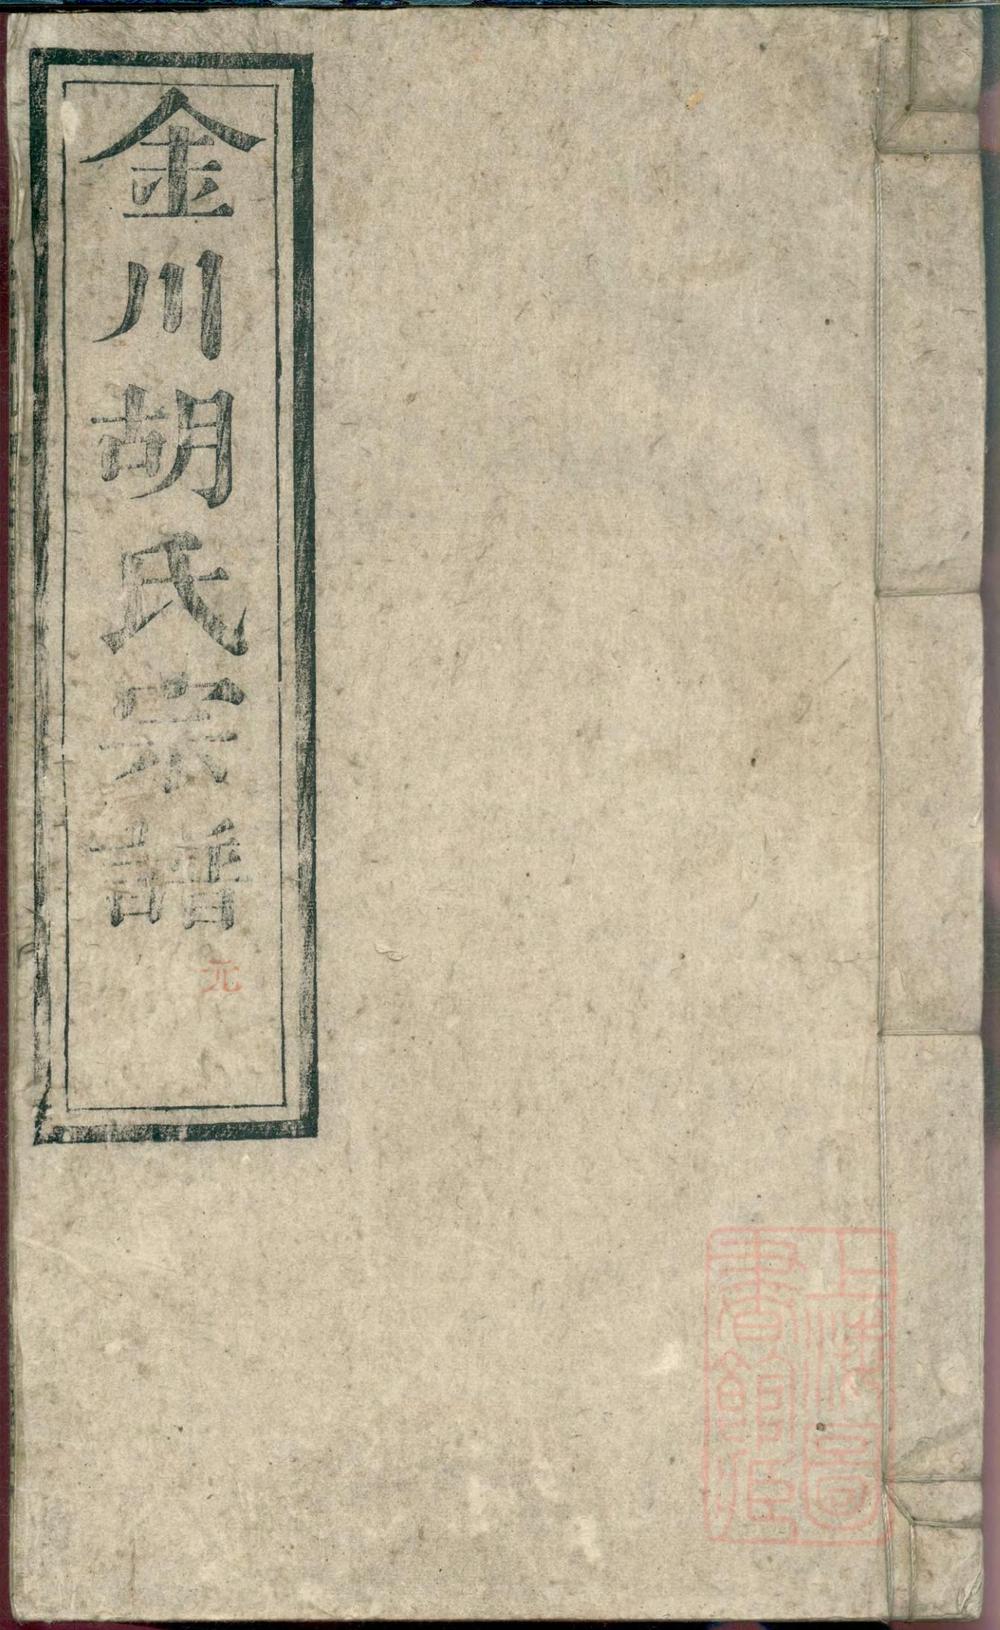 金川胡氏宗譜
元
上海圖
書館藏